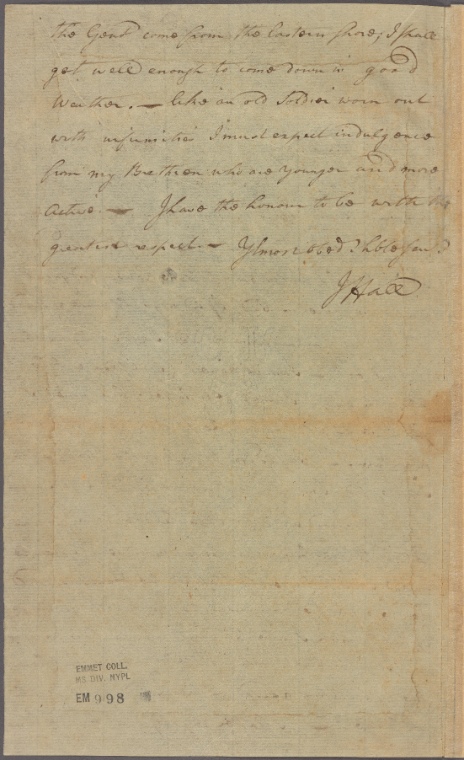 the Gent. come from the Eastern shore, I shall
get well enough to come down in good
Weather. — like an old Soldier worn out
with infirmities I must expect indulgence
from my Brethren who are younger and more
active. — I have the honour to be with the
greatest respect. — Yr most obed. Hble Serv.
J Hall
EMMET COLL.
MS. DIV. NYPL
EM 998